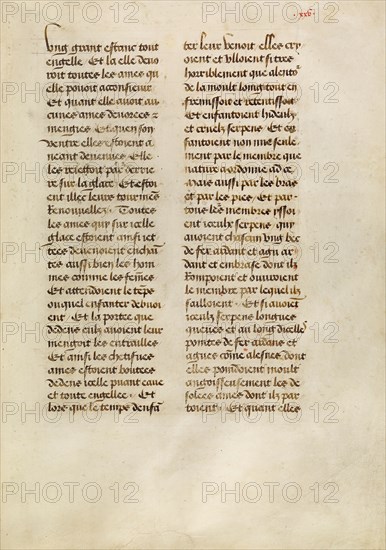 .xxv.
Ung grant estanc tout
engelle Et la elle devo
roit toutes les ames qu
elle pouoit aconsieuir
Et quant elle avoit au
cunes ames devorees z
mengies Et quen son
ventre elles estoient a
neant devenues Elle
les regettoit par derrie
re sur la glace Et estoi
ent illec leurs tourmens
Renouvellez Toutes
les ames qui sur icelle
glace estoient ainsi iet
tees devenoient enchain
tes aussi bien les hom
mes comme les femes
Et attendoient le teps
ouquel enfanter devoi
ent Et la portee que
dedens eulz avoient leur
mengoit les entrailles
Et ainsi les chetifues
ames estoient boutees
dedens icelle puant eaue
et toute engellee Et
lors que le temps denfa
ter leur venoit elles cry
oient et ulloient si tres
horriblement que alento
de la moult loing tout en
fremissoit et retentissoit
Et enfantoient hideulx
et cruelz serpens Et en
fantoient non mie seule
ment par le membre que
nature a ordonne ad ce
mais aussi par les bras
et par les pies Et par
tous les membres yssoi
ent iceulx serpens qui
avoient chascun ung bec
de fer aidant et agu ar
dant et embrase dont ilz
Rompoient et ouvroient
le membre par lequel ilz
sailloient Et si avoiet
iceulx serpens longues
queues et au long dicelle
pointes de fer aidans et
agues come alesnes dont
elles poindoient moult
angoisseusement les de
solees ames dont ilz par
toient Et quant elles
PHOTO 12
PHOTO 12
PHOTO 12
PHOTO 12
PHOTO 12
PHOTO 12
PHOTO 12
PHOTO 12
PHOTO 12
PHOTO 12